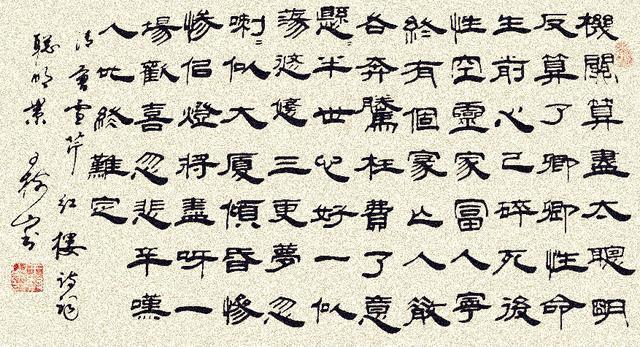 機關算盡太聰明
反算了卿卿性命
生前心已碎死後
性空靈家富人寧
終有個家亡人散
各奔騰枉費了意
懸〻半世心好一似
蕩悠悠三更夢忽
喇〻似大厦傾昏慘
慘侣燈將盡呀一
場歡喜忽悲辛嘆
人世終難定
清曹雪芹红楼诗词
聪明累